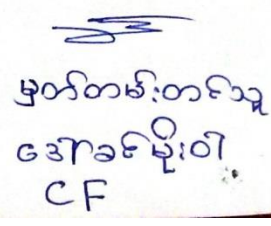 မှတ်တမ်းတင်သူ
ဒေါ်ခင်မိုးဝါ
CF